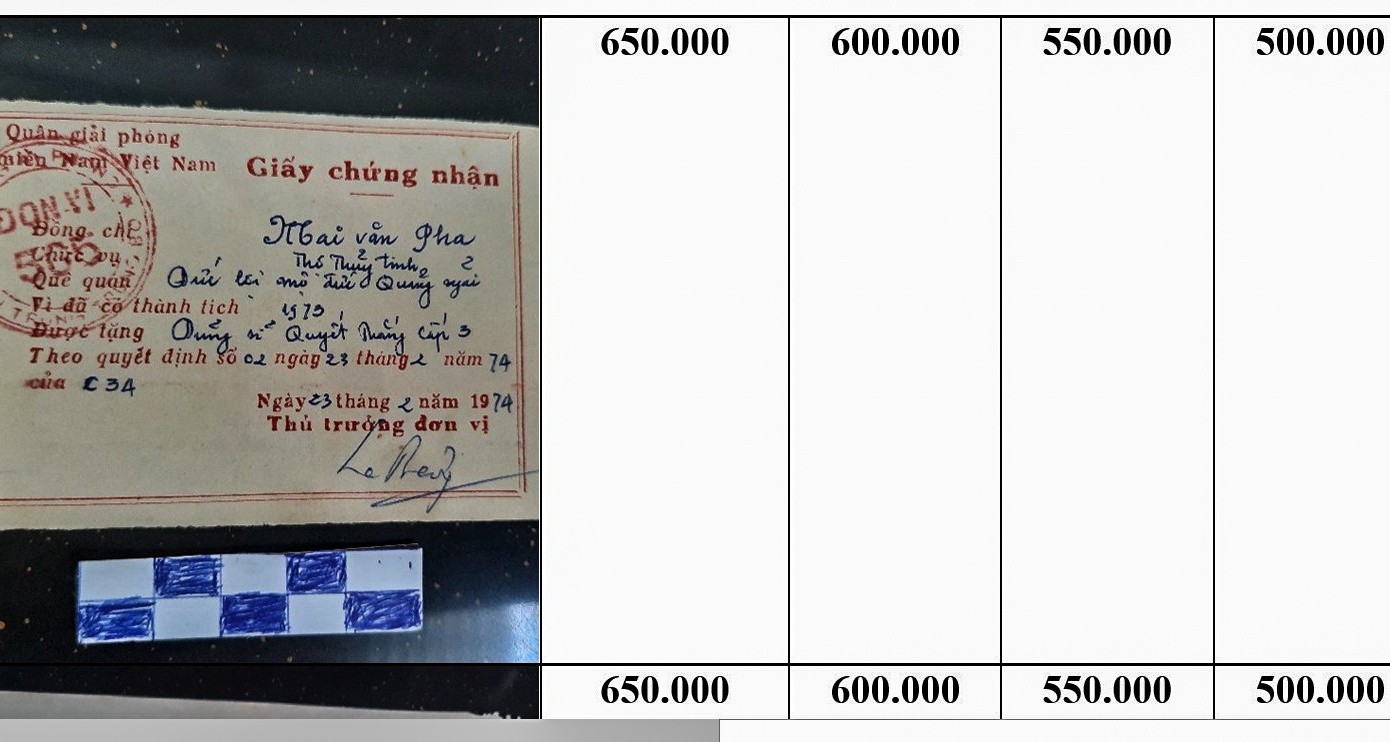 650.000 600.000 550.000 500.000
Quân giải phóng
miền Nam Việt Nam
Giấy chứng nhận
ĐƠN VỊ
Đồng chí Mai văn Pha
Chức vụ
Quê quán Đức lợi mộ đức Quảng ngãi
Vì đã có thành tích 1973
Được tặng Dũng sĩ Quyết thắng cấp 3
Theo quyết định số 02 ngày 23 tháng 2 năm 74
của C34
Ngày 23 tháng 2 năm 1974
Thủ trưởng đơn vị
650.000 600.000 550.000 500.000